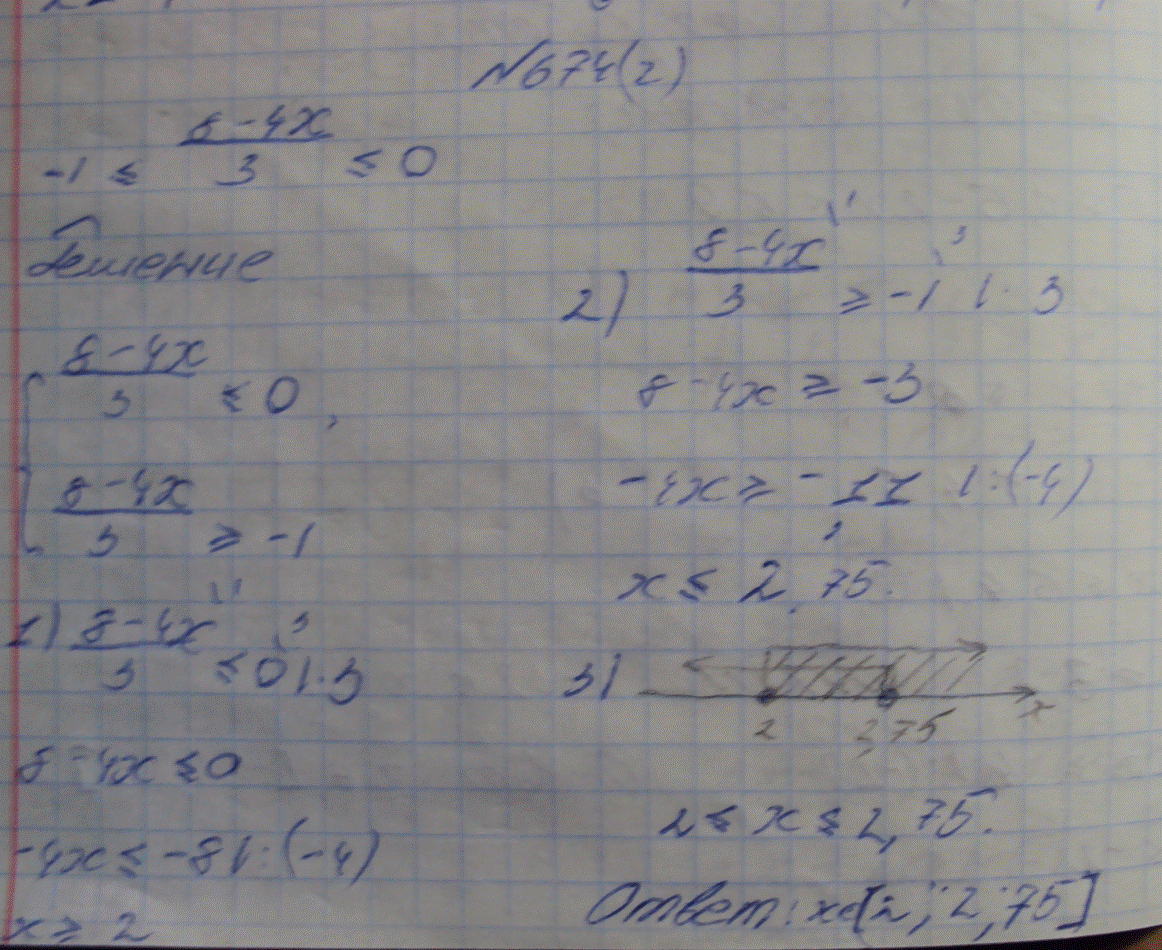 №674(2)
-1 ≤ (8-4x)/3 ≤ 0
Решение
{ (8-4x)/3 ≤ 0,
(8-4x)/3 ≥ -1
1) (8-4x)/3 ≤ 0 | · 3
8-4x ≤ 0
-4x ≤ -8 | : (-4)
x ≥ 2
2) (8-4x)/3 ≥ -1 | · 3
8-4x ≥ -3
-4x ≥ -11 | : (-4)
x ≤ 2,75.
3)
2 2,75 x
2 ≤ x ≤ 2,75.
Ответ: x∈[2; 2,75]